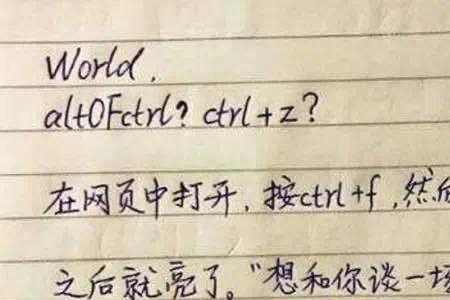 World.
alt0Fctrl? ctrl+z?
在网页中打开，按ctrl+f，然后
之后就亮了。“想和你谈一场